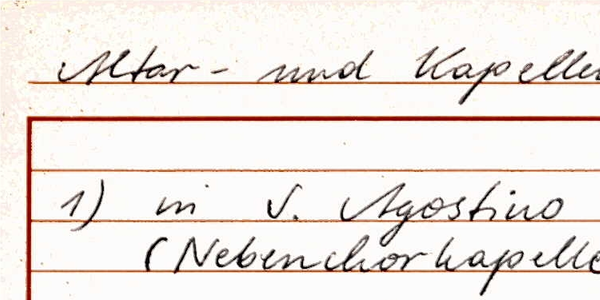 Altar- und Kapellen
1) in S. Agostino
(Nebenchorkapelle